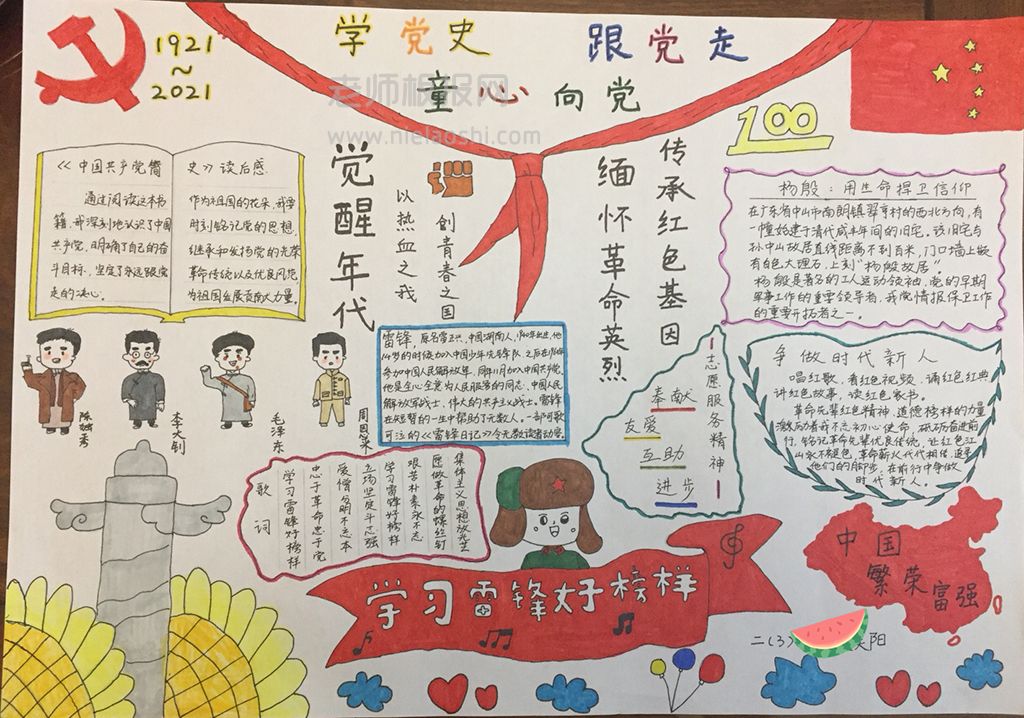 1921
~
2021
学党史 跟党走
童心向党
老师板报网
www.nielaoshi.com
100
《中国共产党简史》读后感
通过阅读这本书
籍,我深刻地认识了中国
共产党,明确了自己的奋
斗目标,坚定了永远跟党
走的决心。
作为祖国的花朵,我要
时刻铭记党的思想,
继承和发扬党的光荣
革命传统以及优良风范,
为祖国发展贡献力量。
觉醒年代
以热血之我
创青春之国
缅怀革命英烈
传承红色基因
杨殷:用生命捍卫信仰
在广东省中山市南朗镇翠亨村的西北方向,有
一幢始建于清代咸丰年间的旧宅。该旧宅与
孙中山故居直线距离不到百米,门口墙上嵌
有白色大理石,上刻"杨殷故居"。
杨殷是著名的工人运动领袖,党的早期
军事工作的重要领导者,我党情报保卫工作
的重要开拓者之一。
陈独秀
李大钊
毛泽东
周恩来
雷锋,原名雷正兴,中国湖南人,1940年出生,他
14岁的时候加入中国少年先锋队,之后在1960年
参加中国人民解放军,同年11月加入中国共产党,
他是全心全意为人民服务的同志,中国人民
解放军战士,伟大的共产主义战士。雷锋
在短暂的一生中帮助了无数人。一部可歌
可泣的《雷锋日记》令无数读者动容。
志愿服务精神
奉献
友爱
互助
进步
争做时代新人
唱红歌,看红色视频,诵红色经典
讲红色故事,读红色家书。
革命先辈红色精神,道德榜样的力量
激励着我不忘初心使命,砥砺奋进前
行,铭记革命先辈优良传统,让红色江
山永不褪色,革命薪火代代相传,追寻
他们的脚步,在前行中争做
时代新人。
歌词
学习雷锋好榜样
忠于革命忠于党
爱憎分明不忘本
立场坚定斗志强
学习雷锋好榜样
艰苦朴素永不忘
愿做革命的螺丝钉
集体主义思想放光芒
学习雷锋好榜样
中国
繁荣
富强
二(3)
阳